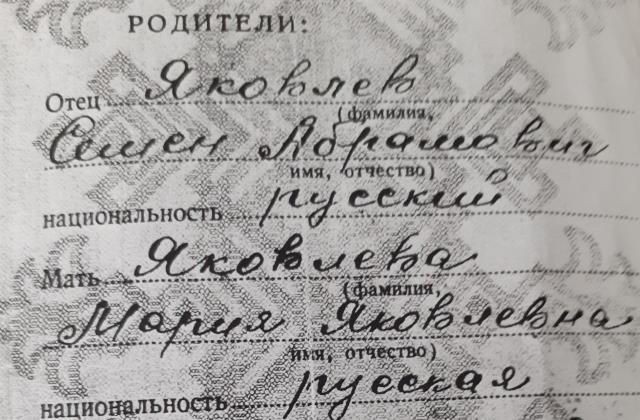 РОДИТЕЛИ:
Отец Яковлев
(фамилия,
Семен Абрамович
имя, отчество)
национальность русский
Мать Яковлева
(фамилия,
Мария Яковлевна
имя, отчество)
национальность русская